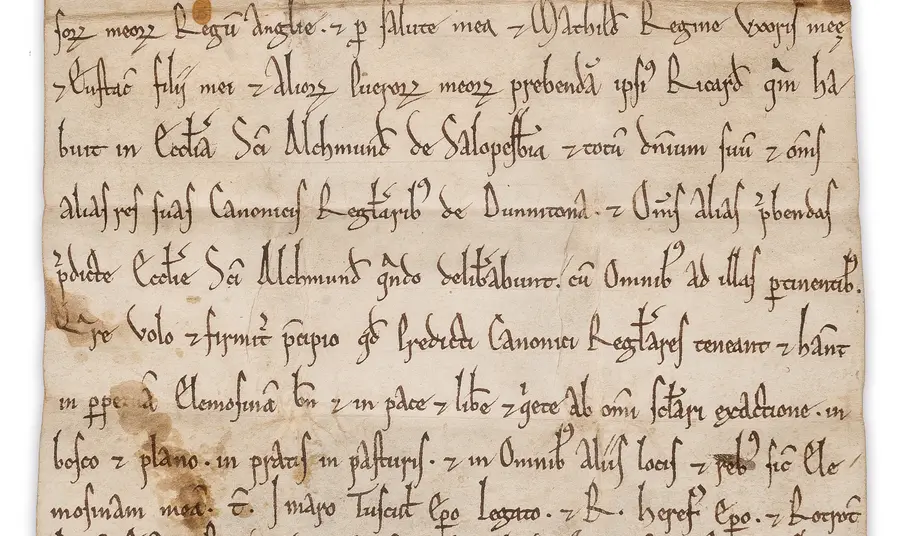 soꝝ meoꝝ Regū Anglie. ⁊ ꝑ salute mea ⁊ Mathild̄ Regine Uxoris meę
⁊ Eustac̄ filii mei ⁊ Alioꝝ Pueroꝝ meoꝝ prebendā ipsiꝰ Ricard̄ qͣm ha
buit in Eccl̄ia Sc̄i Alchmund̄ de Salopesb̄ia ⁊ totū dn̄ium suū ⁊ om̄s
alias res suas Canonicis Regl̄aribꝰ de Dunnitona. ⁊ Om̄s alias p̄bendas
p̄dicte Eccl̄ie Sc̄i Alchmund̄ qͣndo delib̄abunt. cū Omnibꝰ ad illas ꝑtinentibꝰ.
Qͣre Volo ⁊ firmit̄ p̄cipio qd̄ Predicti Canonici Regl̄ares teneant ⁊ hān̄t
in ꝑpetuā Elemosinā bn̄ ⁊ in pace ⁊ lib̄e ⁊ qͥete ab om̄i scl̄ari exactione. in
bosco ⁊ plano. in pratis in pasturis. ⁊ in Omnibꝰ Aliis locis ⁊ rebꝰ sic̄ Ele
mosinam meā. T̄. Imaro Tuscul̄ Ep̄o Legato. ⁊ R. Herefꝰ Ep̄o. ⁊ Rotrot̄